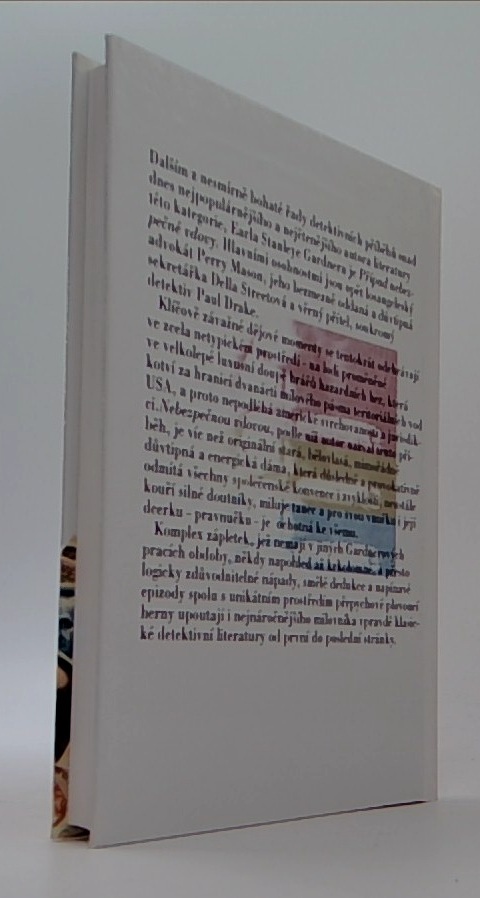 Dalším z nesmírně bohaté řady detektivních příběhů snad
dnes nejpopulárnějšího a nejčtenějšího autora literatury
této kategorie, Earla Stanleye Gardnera je Případ nebez-
pečné vdovy. Hlavními osobnostmi jsou opět losangeleský
advokát Perry Mason, jeho bezmezně oddaná a důvtipná
sekretářka Della Streetová a věrný přítel, soukromý
detektiv Paul Drake.
Klíčově závažné dějové momenty se tentokrát odehrávají
ve zcela netypickém prostředí - na lodi proměněné
ve velkolepé luxusní doupě hráčů hazardních her, která
kotví za hranicí dvanácti mílového pásma teritoriálních vod
USA, a proto nepodléhá americké svrchovanosti a jurisdik-
ci. Nebezpečnou vdovou, podle níž autor nazval tento pří-
běh, je víc než originální stará, bělovlasá, mimořádně
důvtipná a energická dáma, která důsledně a provokativně
odmítá všechny společenské konvence i zvyklosti, neustále
kouří silné doutníky, miluje tanec a pro svou vnučku i její
dcerku - pravnučku - je ochotná ke všemu.
Komplex zápletek, jež nemají v jiných Gardnerových
pracích obdoby, někdy napohled až krkolomné, a přesto
logicky zdůvodnitelné nápady, smělé dedukce a napínavé
epizody spolu s unikátním prostředím přepychové plovoucí
herny upoutají i nejnáročnějšího milovníka vpravdě klasic-
ké detektivní literatury od první do poslední stránky.